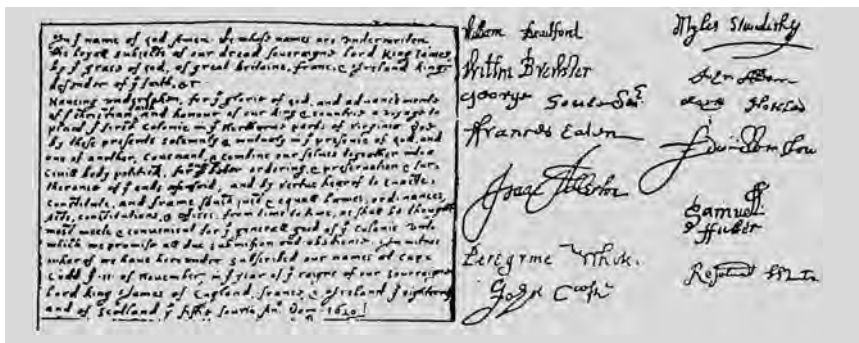 In ẏ name of god Amen. We whose names are underwriten
the loyall subjects of our dread soueraigne lord King James
by ẏ grace of god, of great britaine, franc, & Ireland king
defender of ẏ faith, &c
Haueing undertaken, for ẏ glorie of god, and aduancemente
of ẏ christian faith and honour of our king & countrie, a voyage to
plant ẏ first colonie in ẏ Northerne parts of virginia doe
by these presents solemnly & mutualy in ẏ presence of god, and
one of another, couenant, & combine our selues togeather into a
ciuill body politick, for ẏ better ordering, & preseruation & fur-
therance of ẏ ends aforesaid; and by vertue hearof to enacte,
constitute, and frame such just & equall lawes, ordinances,
Acts, constitutions, & offices, from time to time, as shall be thought
most meete & conuenient for ẏ generall good of ẏ colonie: unto
which we promise all due submission and obedience. In witnes
wherof we haue hereunder subscribed our names at Cape
Codd ẏ ·11· of Nouember, in ẏ year of ẏ raigne of our soueraigne
Lord king James of England, franc, & Ireland ẏ eighteenth
and of Scotland ẏ fiftie fourth. An: Dom 1620
William Bradford
Myles Standish
Willm Brewster
George Soule
Francis Eaton
Isaac Allerton
Samuell
ffuller
Peregrine White.